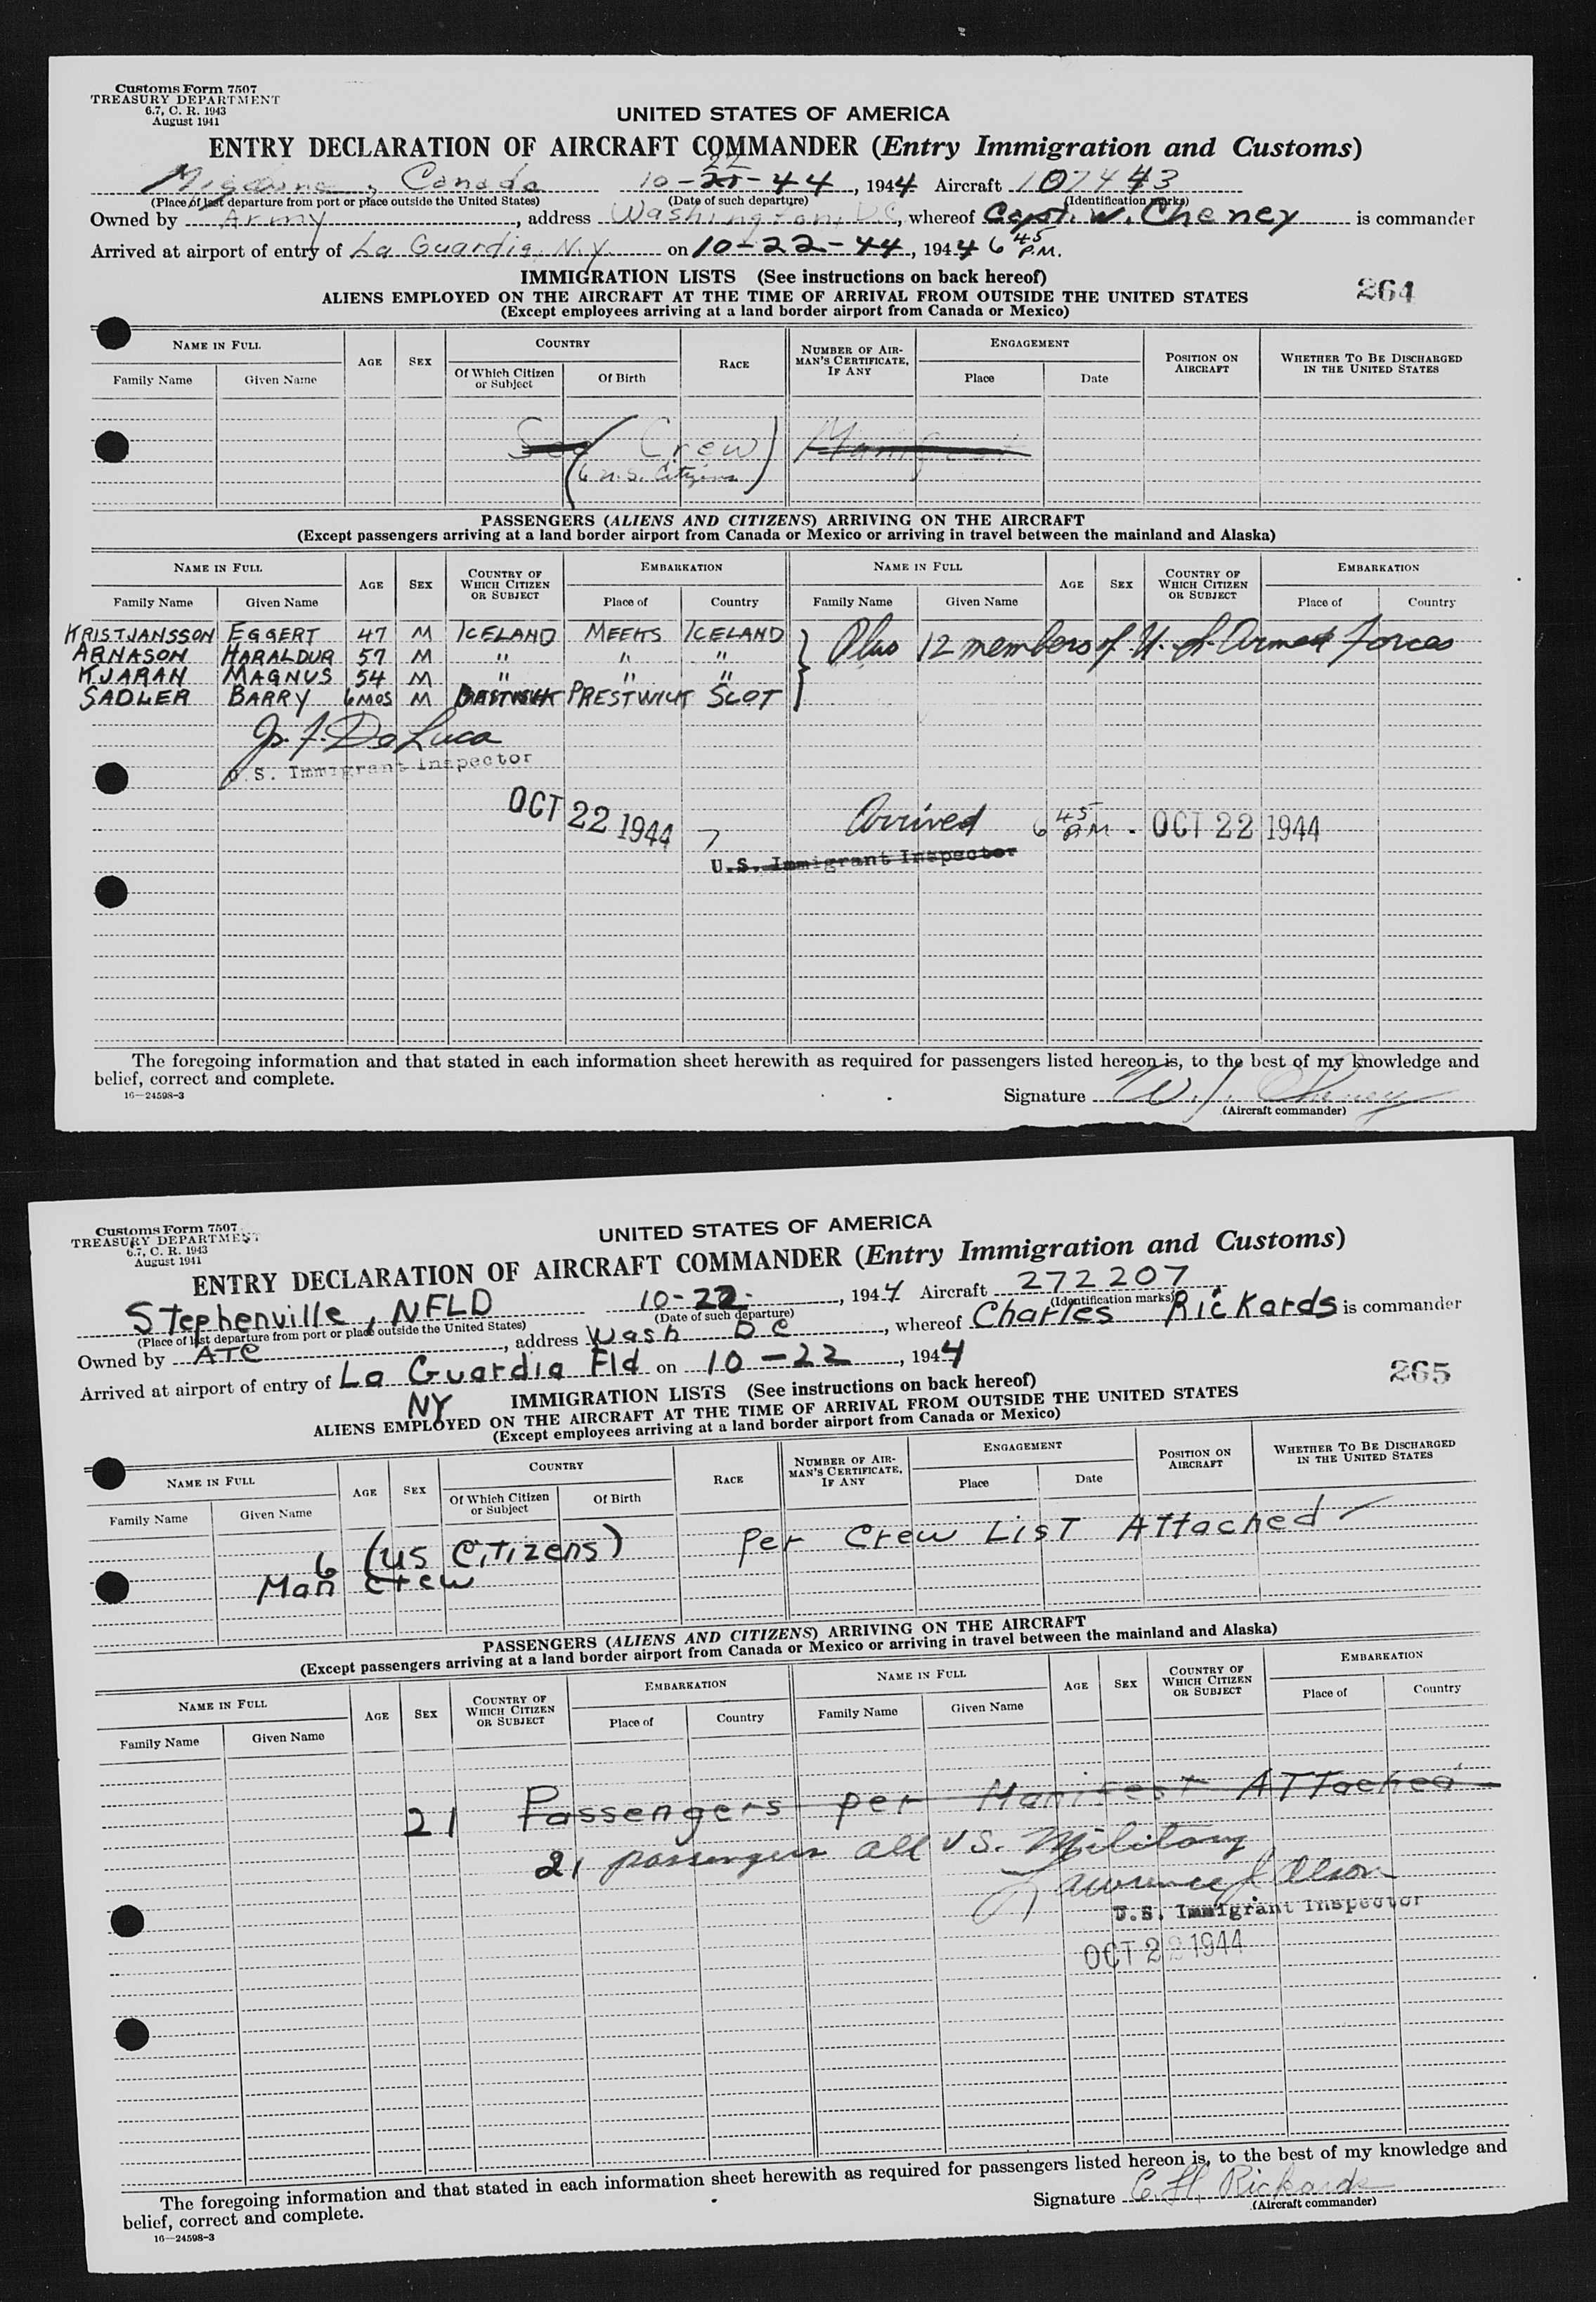 Customs Form 7507
TREASURY DEPARTMENT
6.7, C. R. 1943
August 1941
UNITED STATES OF AMERICA
ENTRY DECLARATION OF AIRCRAFT COMMANDER (Entry Immigration and Customs)
Canada 10-22-44, 1944 Aircraft 107443
(Place of last departure from port or place outside the United States) (Date of such departure) (Identification marks)
Owned by Army, address Washington, DC, whereof Capt. W. Cheney is commander
Arrived at airport of entry of La Guardia, N.Y. on 10-22-44, 1944 6 45 P.M.
IMMIGRATION LISTS (See instructions on back hereof)
ALIENS EMPLOYED ON THE AIRCRAFT AT THE TIME OF ARRIVAL FROM OUTSIDE THE UNITED STATES 264
(Except employees arriving at a land border airport from Canada or Mexico)
NAME IN FULL AGE SEX COUNTRY RACE NUMBER OF AIRMAN'S CERTIFICATE, IF ANY ENGAGEMENT POSITION ON AIRCRAFT WHETHER TO BE DISCHARGED IN THE UNITED STATES
Family Name Given Name Of Which Citizen or Subject Of Birth Place Date
See (Crew) Manifest
6 U.S. Citizens
PASSENGERS (ALIENS AND CITIZENS) ARRIVING ON THE AIRCRAFT
(Except passengers arriving at a land border airport from Canada or Mexico or arriving in travel between the mainland and Alaska)
NAME IN FULL AGE SEX COUNTRY OF WHICH CITIZEN OR SUBJECT EMBARKATION NAME IN FULL AGE SEX COUNTRY OF WHICH CITIZEN OR SUBJECT EMBARKATION
Family Name Given Name Place of Country Family Name Given Name Place of Country
KRISTJANSSON EGGERT 47 M ICELAND MEEKS ICELAND } Plus 12 members of U. S. Armed Forces
ARNASON HARALDUR 57 M " " "
KJARAN MAGNUS 54 M " " "
SADLER BARRY 6 MOS M PRESTWICK SCOT
J. F. DeLuca
U.S. Immigrant Inspector
OCT 22 1944 Arrived 6 45 P.M. OCT 22 1944
U.S. Immigrant Inspector
The foregoing information and that stated in each information sheet herewith as required for passengers listed hereon is, to the best of my knowledge and
belief, correct and complete.
16—24598-3
Signature W. J. Cheney
(Aircraft commander)
Customs Form 7507
TREASURY DEPARTMENT
6.7, C. R. 1943
August 1941
UNITED STATES OF AMERICA
ENTRY DECLARATION OF AIRCRAFT COMMANDER (Entry Immigration and Customs)
Stephenville, NFLD 10-22-, 1944 Aircraft 272207
(Place of last departure from port or place outside the United States) (Date of such departure) (Identification marks)
Owned by ATC, address Wash DC, whereof Charles Rickards is commander
Arrived at airport of entry of La Guardia Fld on 10-22, 1944
NY
IMMIGRATION LISTS (See instructions on back hereof) 265
ALIENS EMPLOYED ON THE AIRCRAFT AT THE TIME OF ARRIVAL FROM OUTSIDE THE UNITED STATES
(Except employees arriving at a land border airport from Canada or Mexico)
NAME IN FULL AGE SEX COUNTRY RACE NUMBER OF AIRMAN'S CERTIFICATE, IF ANY ENGAGEMENT POSITION ON AIRCRAFT WHETHER TO BE DISCHARGED IN THE UNITED STATES
Family Name Given Name Of Which Citizen or Subject Of Birth Place Date
6 (US Citizens) Per Crew List Attached
Man crew
PASSENGERS (ALIENS AND CITIZENS) ARRIVING ON THE AIRCRAFT
(Except passengers arriving at a land border airport from Canada or Mexico or arriving in travel between the mainland and Alaska)
NAME IN FULL AGE SEX COUNTRY OF WHICH CITIZEN OR SUBJECT EMBARKATION NAME IN FULL AGE SEX COUNTRY OF WHICH CITIZEN OR SUBJECT EMBARKATION
Family Name Given Name Place of Country Family Name Given Name Place of Country
21 Passengers per Manifest Attached
21 passengers all US. Military
Lawrence J. Olson
U.S. Immigrant Inspector
OCT 22 1944
The foregoing information and that stated in each information sheet herewith as required for passengers listed hereon is, to the best of my knowledge and
belief, correct and complete.
16—24598-3
Signature C. H. Rickards
(Aircraft commander)